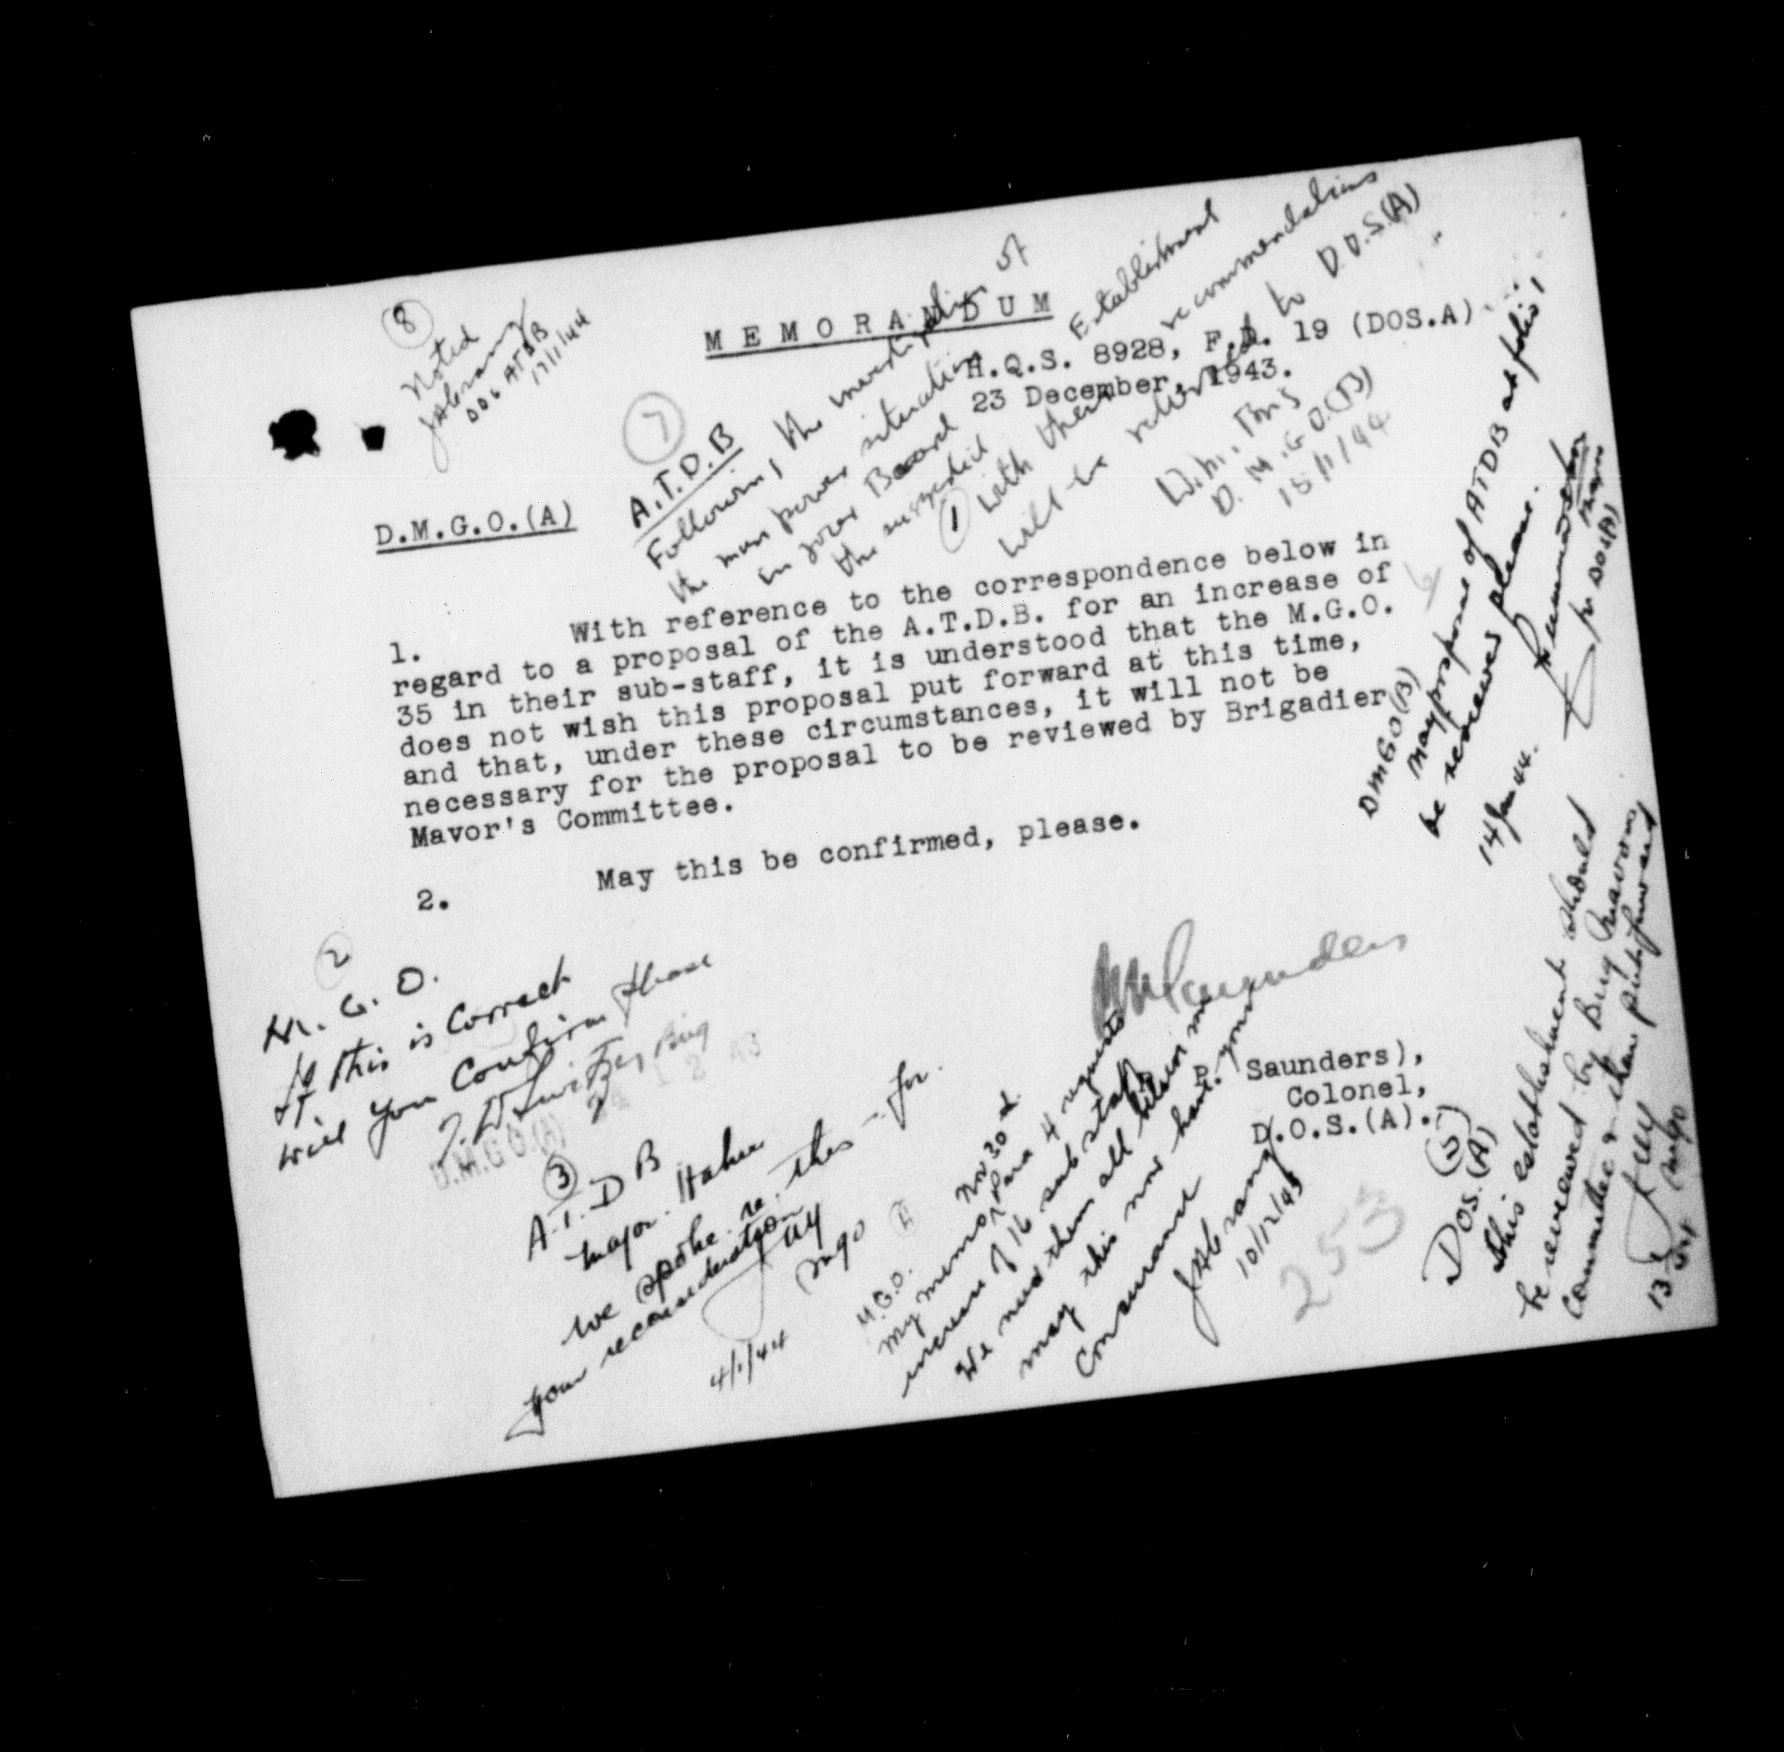 MEMORANDUM
H.Q.S. 8928, F.D. 19 (DOS.A)
23 December, 1943.
D.M.G.O.(A)
1. With reference to the correspondence below in
regard to a proposal of the A.T.D.B. for an increase of
35 in their sub-staff, it is understood that the M.G.O.
does not wish this proposal put forward at this time,
and that, under these circumstances, it will not be
necessary for the proposal to be reviewed by Brigadier
Mavor's Committee.
2. May this be confirmed, please.
P. Saunders),
Colonel,
D.O.S.(A).
2
M.G.O.
If this is correct
will you confirm please
Brig
D.M.G.O(A) 24 12 43
3
A.T.D.B
Major Hahn
We spoke re this - for
your reconsideration
MGO
4/1/44
M.G.O.
My memo Nov 30
para 4 requests
increase of 16 sub staff
We need them all
may this now have your
concurrence
10/12/43
253
(5)
DOS.(A)
This establishment should
be reviewed by Brig Mavor's
Committee & then put forward
MGO
13 44
DMGO(B)
May proposal of ATDB at folio 1
be reviewed please.
14 Jan 44.
for DOS(A)
7
A.T.D.B
Following the investigation of
the man power situation
in your Board
the suggested Establishment
(1) with their recommendations
will be returned to D.O.S.(A)
Brig
D.M.G.O.(B)
15/1/44
8
Noted
DDG ATDB
17/1/44